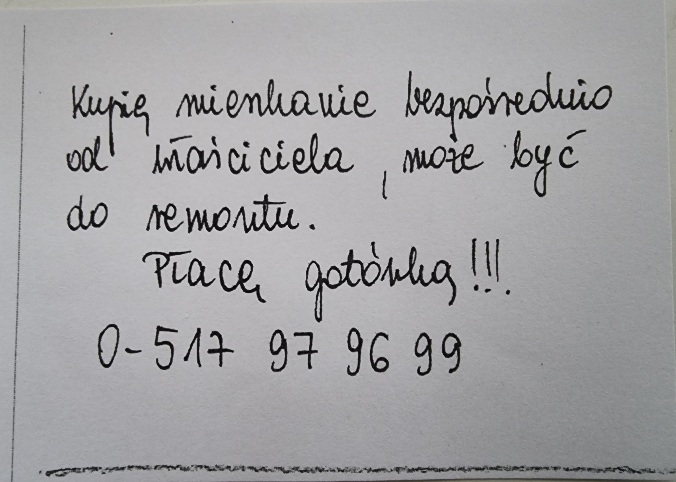 Kupię mieszkanie bezpośrednio
od właściciela, może być
do remontu.
Płacę gotówką!!!
0-517 97 96 99